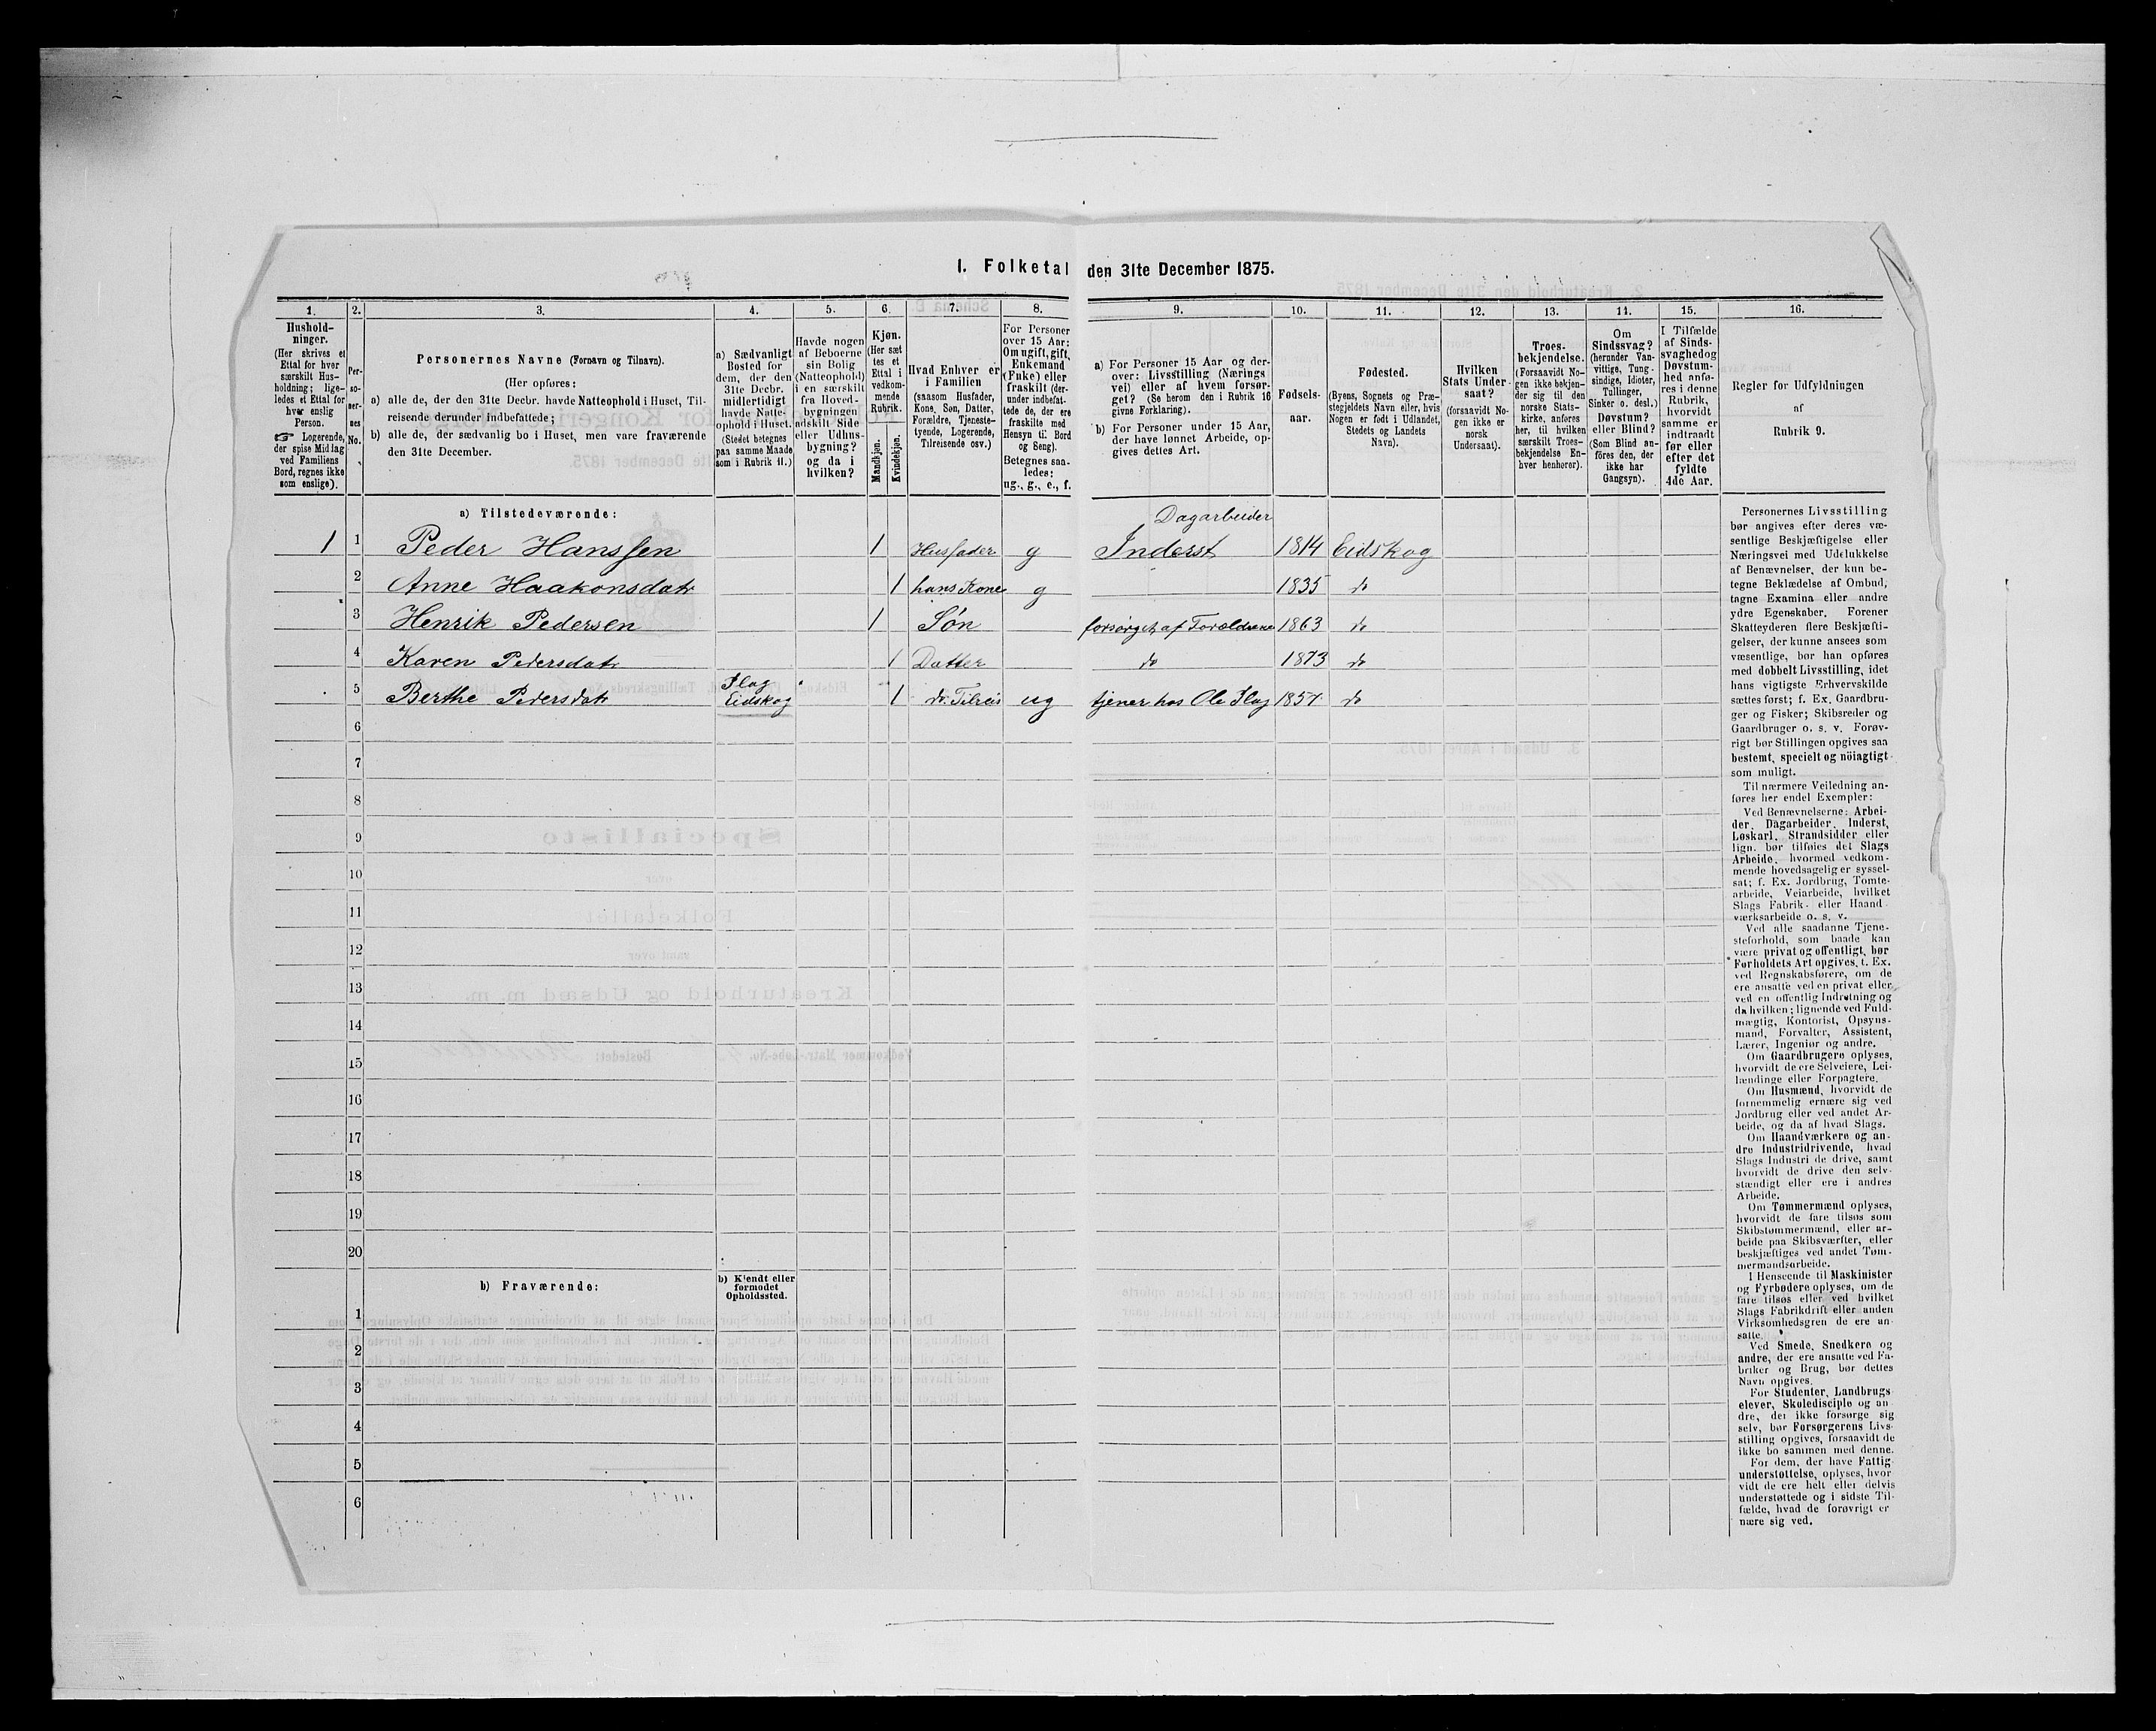 I. Folketal den 31te December 1875.
1. 2. 3. 4. 5. 6. 7. 8. 9. 10. 11. 12. 13. 14. 15. 16.
Hushold-
ninger.
(Her skrives et
Ettal for hver
særskilt Hus-
holdning; lige-
ledes et Ettal for
hver enslig
Person.
☞ Logerende,
der spise Middag
ved Familiens
Bord, regnes ikke
som enslige).
Per-
so-
ner-
nes
No.
Personernes Navne (Fornavn og Tilnavn).
(Her opføres:
a) alle de, der den 31te Decbr. havde Natteophold i Huset, Til-
reisende derunder indbefattede;
b) alle de, der sædvanlig bo i Huset, men vare fraværende
den 31te December.
a) Sædvanligt
Bosted for
dem, der den
31te Decbr.
midlertidigt
havde Natte-
ophold i Huset.
(Stedet betegnes
paa samme Maade
som i Rubrik 11.)
Havde nogen
af Beboerne
sin Bolig
(Natteophold)
i en særskilt
fra Hoved-
bygningen
adskilt Side
eller Udhus-
bygning?
og da i
hvilken?
Kjøn.
(Her sæt
tes et
Ettal i
vedkom-
mende
Rubrik.
Mandkjøn.
Kvindekjøn.
Hvad Enhver er
i Familien
(saasom Husfader,
Kone, Søn, Datter,
Forældre, Tjeneste-
tyende, Logerende,
Tilreisende osv.)
For Personer
over 15 Aar:
Om ugift, gift,
Enkemand
(Enke) eller
fraskilt (der-
under indbefat-
tede de, der ere
fraskilte med
Hensyn til Bord
og Seng).
Betegnes saa-
ledes:
ug., g., e., f.
a) For Personer 15 Aar og der-
over: Livsstilling (Nærings
vei) eller af hvem forsør-
get? (Se herom den i Rubrik 16
givne Forklaring).
b) For Personer under 15 Aar,
der have lønnet Arbeide, op-
gives dettes Art.
Fødsels-
aar.
Fødested.
(Byens, Sognets og Præ-
stegjeldets Navn eller, hvis
Nogen er født i Udlandet,
Stedets og Landets
Navn).
Hvilken
Stats Under-
saat?
(forsaavidt No-
gen ikke er
norsk
Undersaat).
Troes-
bekjendelse.
(Forsaavidt No-
gen ikke bekjen-
der sig til den
norske Stats-
kirke, anføres
her, til hvilken
særskilt Troes-
bekjendelse En-
hver henhører).
Om
Sindssvag?
(herunder Van-
vittige, Tung-
sindige, Idioter,
Tullinger,
Sinker o. desl.)
Døvstum?
eller Blind?
(Som Blind an-
föres den, der
ikke har
Gangsyn).
I Tilfælde
af Sinds-
svaghed og
Døvstum-
hed anfø-
res i denne
Rubrik,
hvorvidt
samme er
indtraadt
før eller
efter det
fyldte
4de Aar.
Regler for Udfyldningen
af
Rubrik 9.
a) Tilstedeværende:
Dagarbeider
1 1 Peder Hanssen 1 Husfader g Inderst 1814 Eidskog
2 Anne Haakonsdatr 1 hans Kone g 1835 do
3 Henrik Pedersen 1 Søn forsørget af Forældrene 1863 do
4 Karen Pedersdatr 1 Datter do 1873 do
Slag
5 Berthe Pedersdatr Eidskog 1 do. Tilreis ug tjener hos Ole Slag 1857 do
6
7
8
9
10
11
12
13
14
15
16
17
18
19
20
b) Fraværende:
b) Kjendt eller
formodet
Opholdssted.
1
2
3
4
5
6
Personernes Livsstilling
bør angives efter deres væ-
sentlige Beskjæftigelse eller
Næringsvei med Udelukkelse
af Benævnelser, der kun be-
tegne Beklædelse af Ombud,
tagne Examina eller andre
ydre Egenskaber. Forener
Skatteyderen flere Beskjæfti-
gelser, der kunne ansees som
væsentlige, bør han opføres
med dobbelt Livsstilling, idet
hans vigtigste Erhvervskilde
sættes først; f. Ex. Gaardbru-
ger og Fisker; Skibsreder og
Gaardbruger o. s. v. Forøv-
rigt bør Stillingen opgives saa
bestemt, specielt og nöiagtigt
som muligt.
Til nærmere Veiledning an-
føres her endel Exempler:
Ved Benævnelserne: Arbei-
der, Dagarbeider, Inderst,
Løskarl, Strandsidder eller
lign. bør tilføies det Slags
Arbeide, hvormed vedkom-
mende hovedsagelig er syssel-
sat; f. Ex. Jordbrug, Tomte-
arbeide, Veiarbeide, hvilket
Slags Fabrik- eller Haand-
værksarbeide o. s. v.
Ved alle saadanne Tjene-
steforhold, som baade kan
være privat og offentligt, bør
Forholdets Art opgives, t. Ex.
ved Regnskabsførere, om de
ere ansatte ved en privat eller
ved en offentlig Indretning og
da hvilken; lignende ved Fuld-
mægtig, Kontorist, Opsyns-
mand, Forvalter, Assistent,
Lærer, Ingeniør og andre.
Om Gaardbrugere oplyses,
hvorvidt de ere Selveiere, Lei-
lændinge eller Forpagtere.
Om Husmænd, hvorvidt de
fornemmelig ernære sig ved
Jordbrug eller ved andet Ar-
beide, og da af hvad Slags.
Om Haandværkere og an-
dre Industridrivende, hvad
Slags Industri de drive, samt
hvorvidt de drive den selv-
stændigt eller ere i andres
Arbeide.
Om Tømmermænd oplyses,
hvorvidt de fare tilsøs som
Skibstømmermænd, eller ar-
beide paa Skibsværfter, eller
beskjæftiges ved andet Tøm-
mermandsarbeide.
I Henseende til Maskinister
og Fyrbødere oplyses, om de
fare tilsøs eller ved hvilket
Slags Fabrikdrift eller anden
Virksomhedsgren de ere an-
satte.
Ved Smede, Snedkere og
andre, der ere ansatte ved Fa-
briker og Brug, bør dettes
Navn opgives.
For Studenter, Landbrugs-
elever, Skoledisciple og an-
dre, der ikke forsørge sig
selv, bør Forsørgerens Livs-
stilling opgives, forsaavidt de
ikke bo sammen med denne.
For dem, der have Fattig-
understøttelse, oplyses, hvor-
vidt de ere helt eller delvis
understøttede og i sidste Til-
fælde, hvad de forøvrigt er-
nære sig ved.